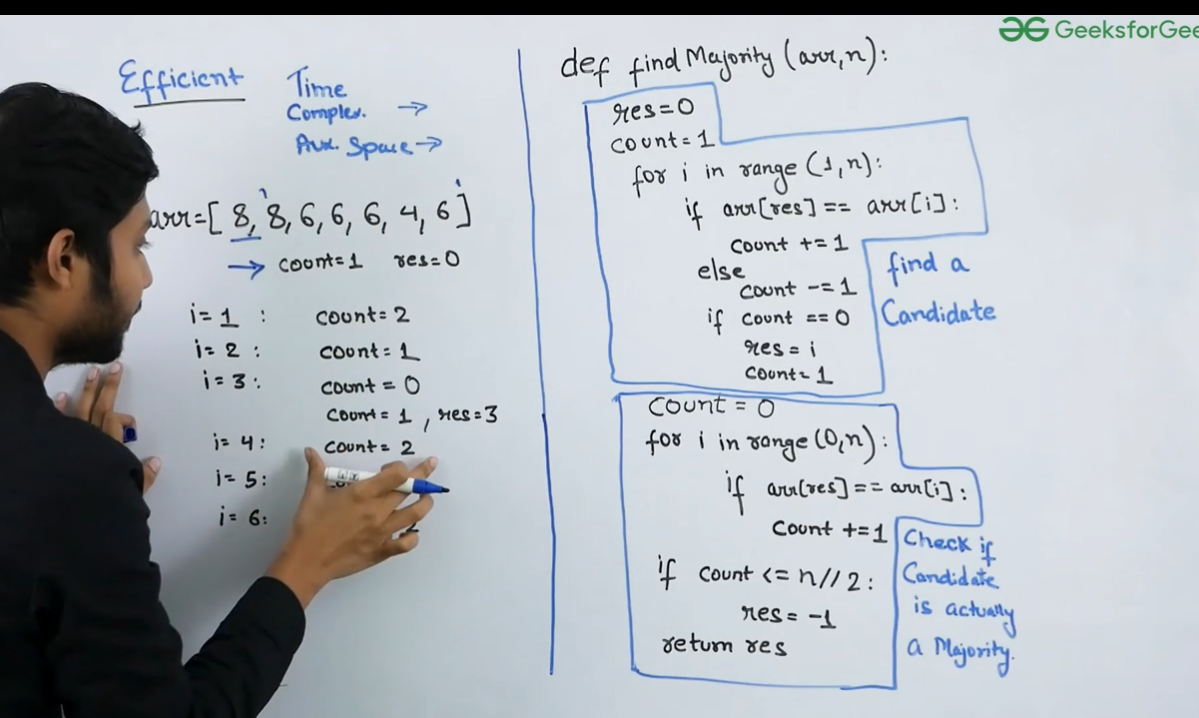 GeeksforGee
Efficient
Time
Complex. →
Aux. Space →
arr=[ 8, 8, 6, 6, 6, 4, 6 ]
i
i
→ count=1 res=0
i= 1 : count= 2
i= 2 : count= 1
i= 3 : count = 0
count= 1 , res=3
i= 4 : count= 2
i= 5:
i= 6: 2
def find Majority (arr,n):
res=0
count= 1
for i in range (1,n):
if arr[res] == arr[i]:
count += 1
else
count -= 1
if count == 0
res = i
count= 1
find a
Candidate
Count = 0
for i in range (0,n):
if arr[res] == arr[i]:
Count +=1
if count <= n//2:
res= -1
return res
Check if
Candidate
is actually
a Majority.